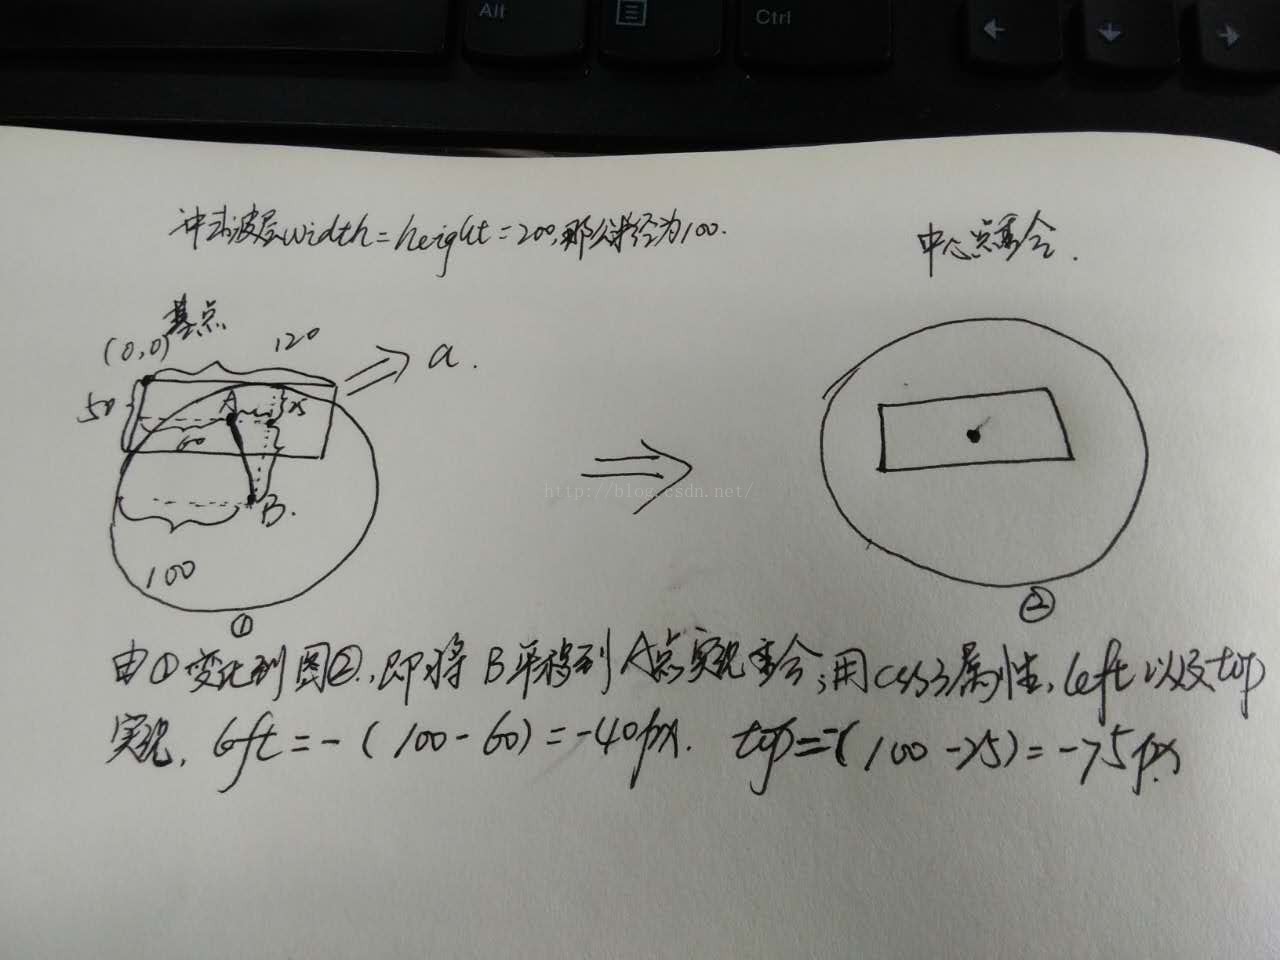 Alt
Ctrl
冲击波层width=height=200,那么半径为100.
中心点重合.
基点
(0,0)
120
a.
50
A
25
60
B.
100
http://blog.csdn.net/
①
②
由①变化到图②,即将B平移到A点实现重合;用css3属性,left以及top
实现, left=-(100-60)=-40px. top=-(100-25)=-75px